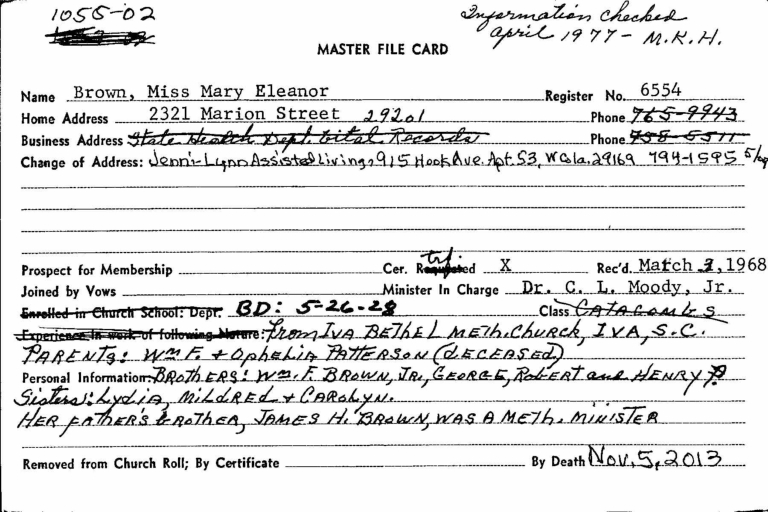 1055-02
Information checked
April 1977 - M.K.H.
MASTER FILE CARD
Name Brown, Miss Mary Eleanor Register No. 6554
Home Address 2321 Marion Street 29201 Phone 765-9943
Business Address State Health Dept. Vital Records Phone 758-5511
Change of Address: Jenni-Lynn Assisted Living, 915 Hook Ave. Apt. 53, W Cola. 29169 794-1595
Prospect for Membership Cer. trf X Rec'd. March 3, 1968
Joined by Vows Minister In Charge Dr. C. L. Moody, Jr.
Enrolled in Church School: Dept. BD: 5-26-28 Class CATACOMBS
Experience in work of following Nature: from IVA BETHEL METH. CHURCH, IVA, S.C.
PARENTS: Wm F. + Ophelia PATTERSON (deceased)
Personal Information: BROTHERS: Wm. F. BROWN, JR., GEORGE, Robert and HENRY P.
Sisters: Lydia, MildRed + CAROLYN.
HER fATHER'S BROTHER, JAMES H. BROWN, WAS A METH. MINISTER
Removed from Church Roll; By Certificate By Death Nov. 5, 2013